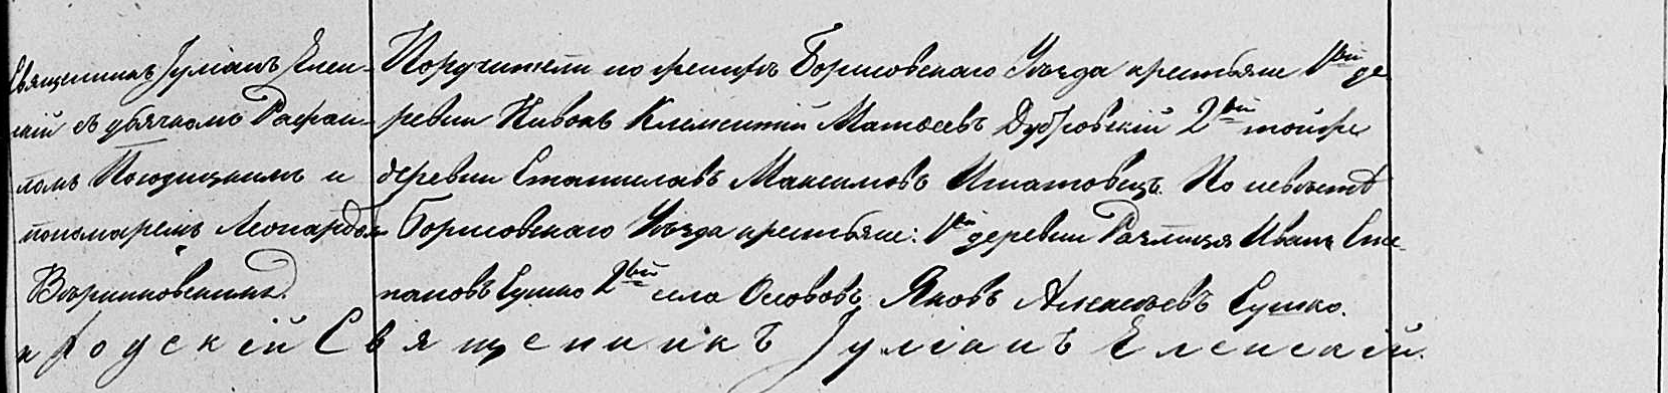 Священникъ Іуліанъ Елен-
скій съ дьячкомъ Рафаи-
ломъ и
пономаремъ Леонардом
Поручители по женихѣ Борисовскаго Уѣзда крестьяне 1ый де
ревни Нивокъ Климентій Матѳеевъ Дубровскій 2ой той же
деревни Станиславъ Максимовъ Игнатовецъ. По невѣстѣ
Борисовскаго Уѣзда крестьяне: 1ый деревни Иванъ Сте-
пановъ Сушко 2ой села Осововъ Яковъ Сушко.
Священникъ Іуліанъ Еленскій.